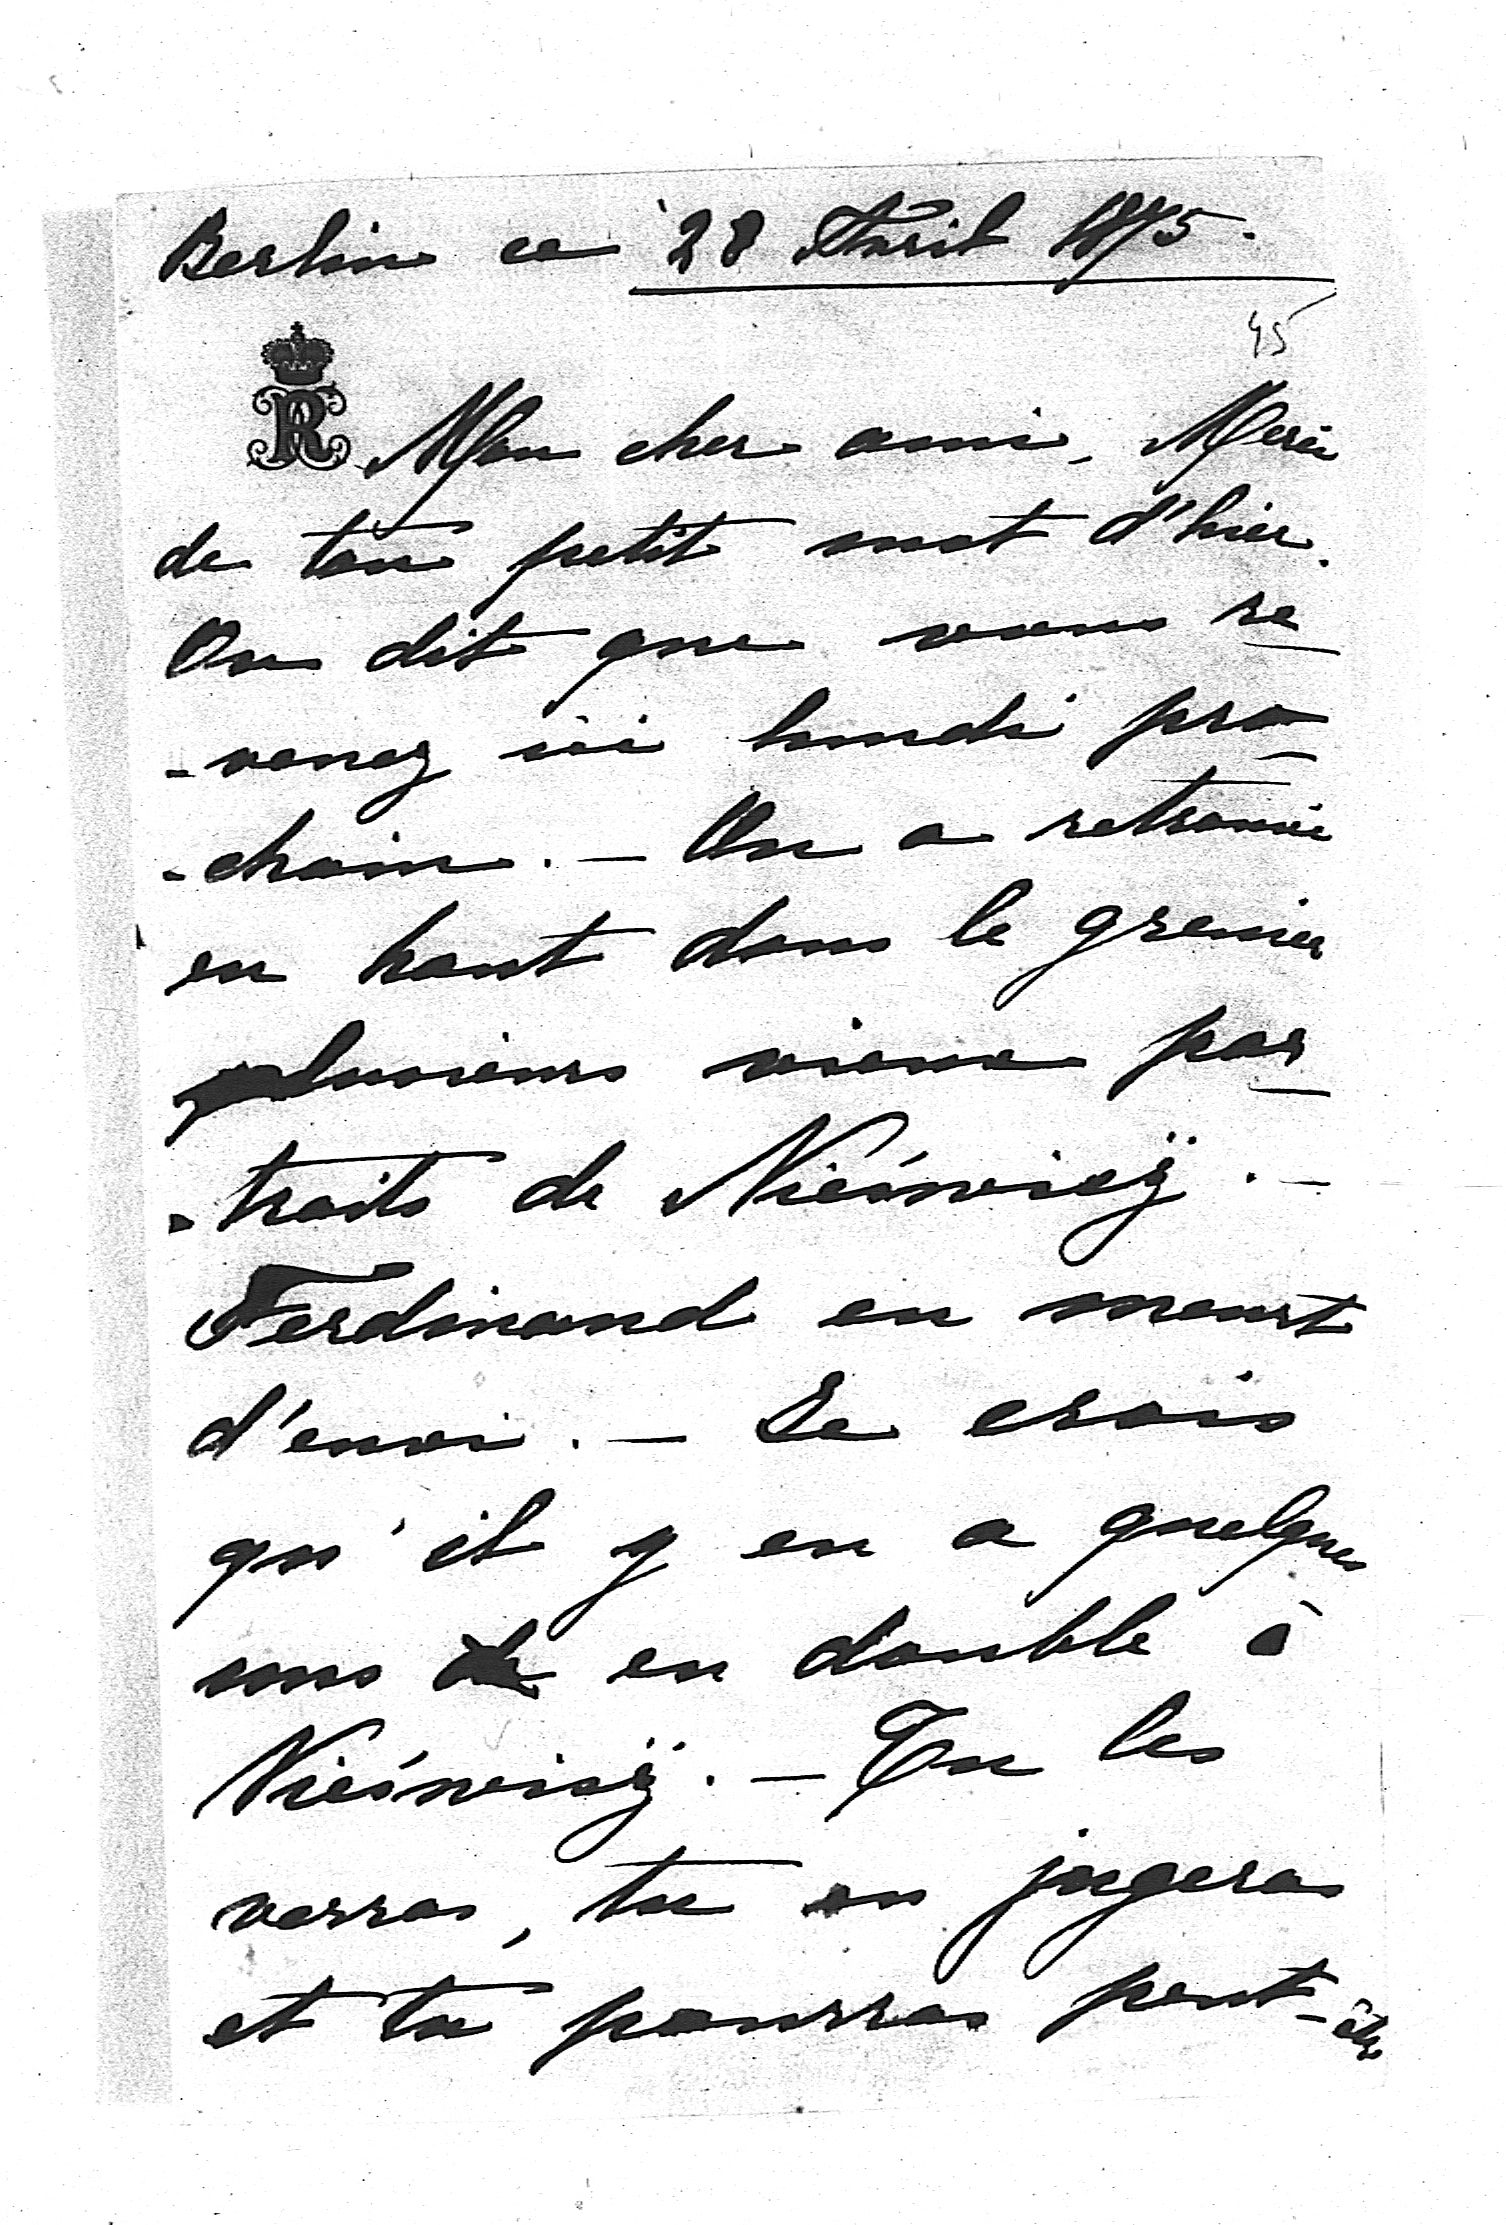 Berlin ce 28 Avril 1875.
45
R Mon cher ami, Merci
de ton petit mot d'hier.
On dit que vous re
-venez ici lundi pro
-chain. — On a retrouvé
en haut dans le grenier
plusieurs vieux por
-traits de Nieświeź. —
Ferdinand en meurt
d'envi. — Je crois
qu'il y en a quelques
uns en double à
Nieświeź. — Tu les
verras, tu en jugeras
et tu pourras peut-être